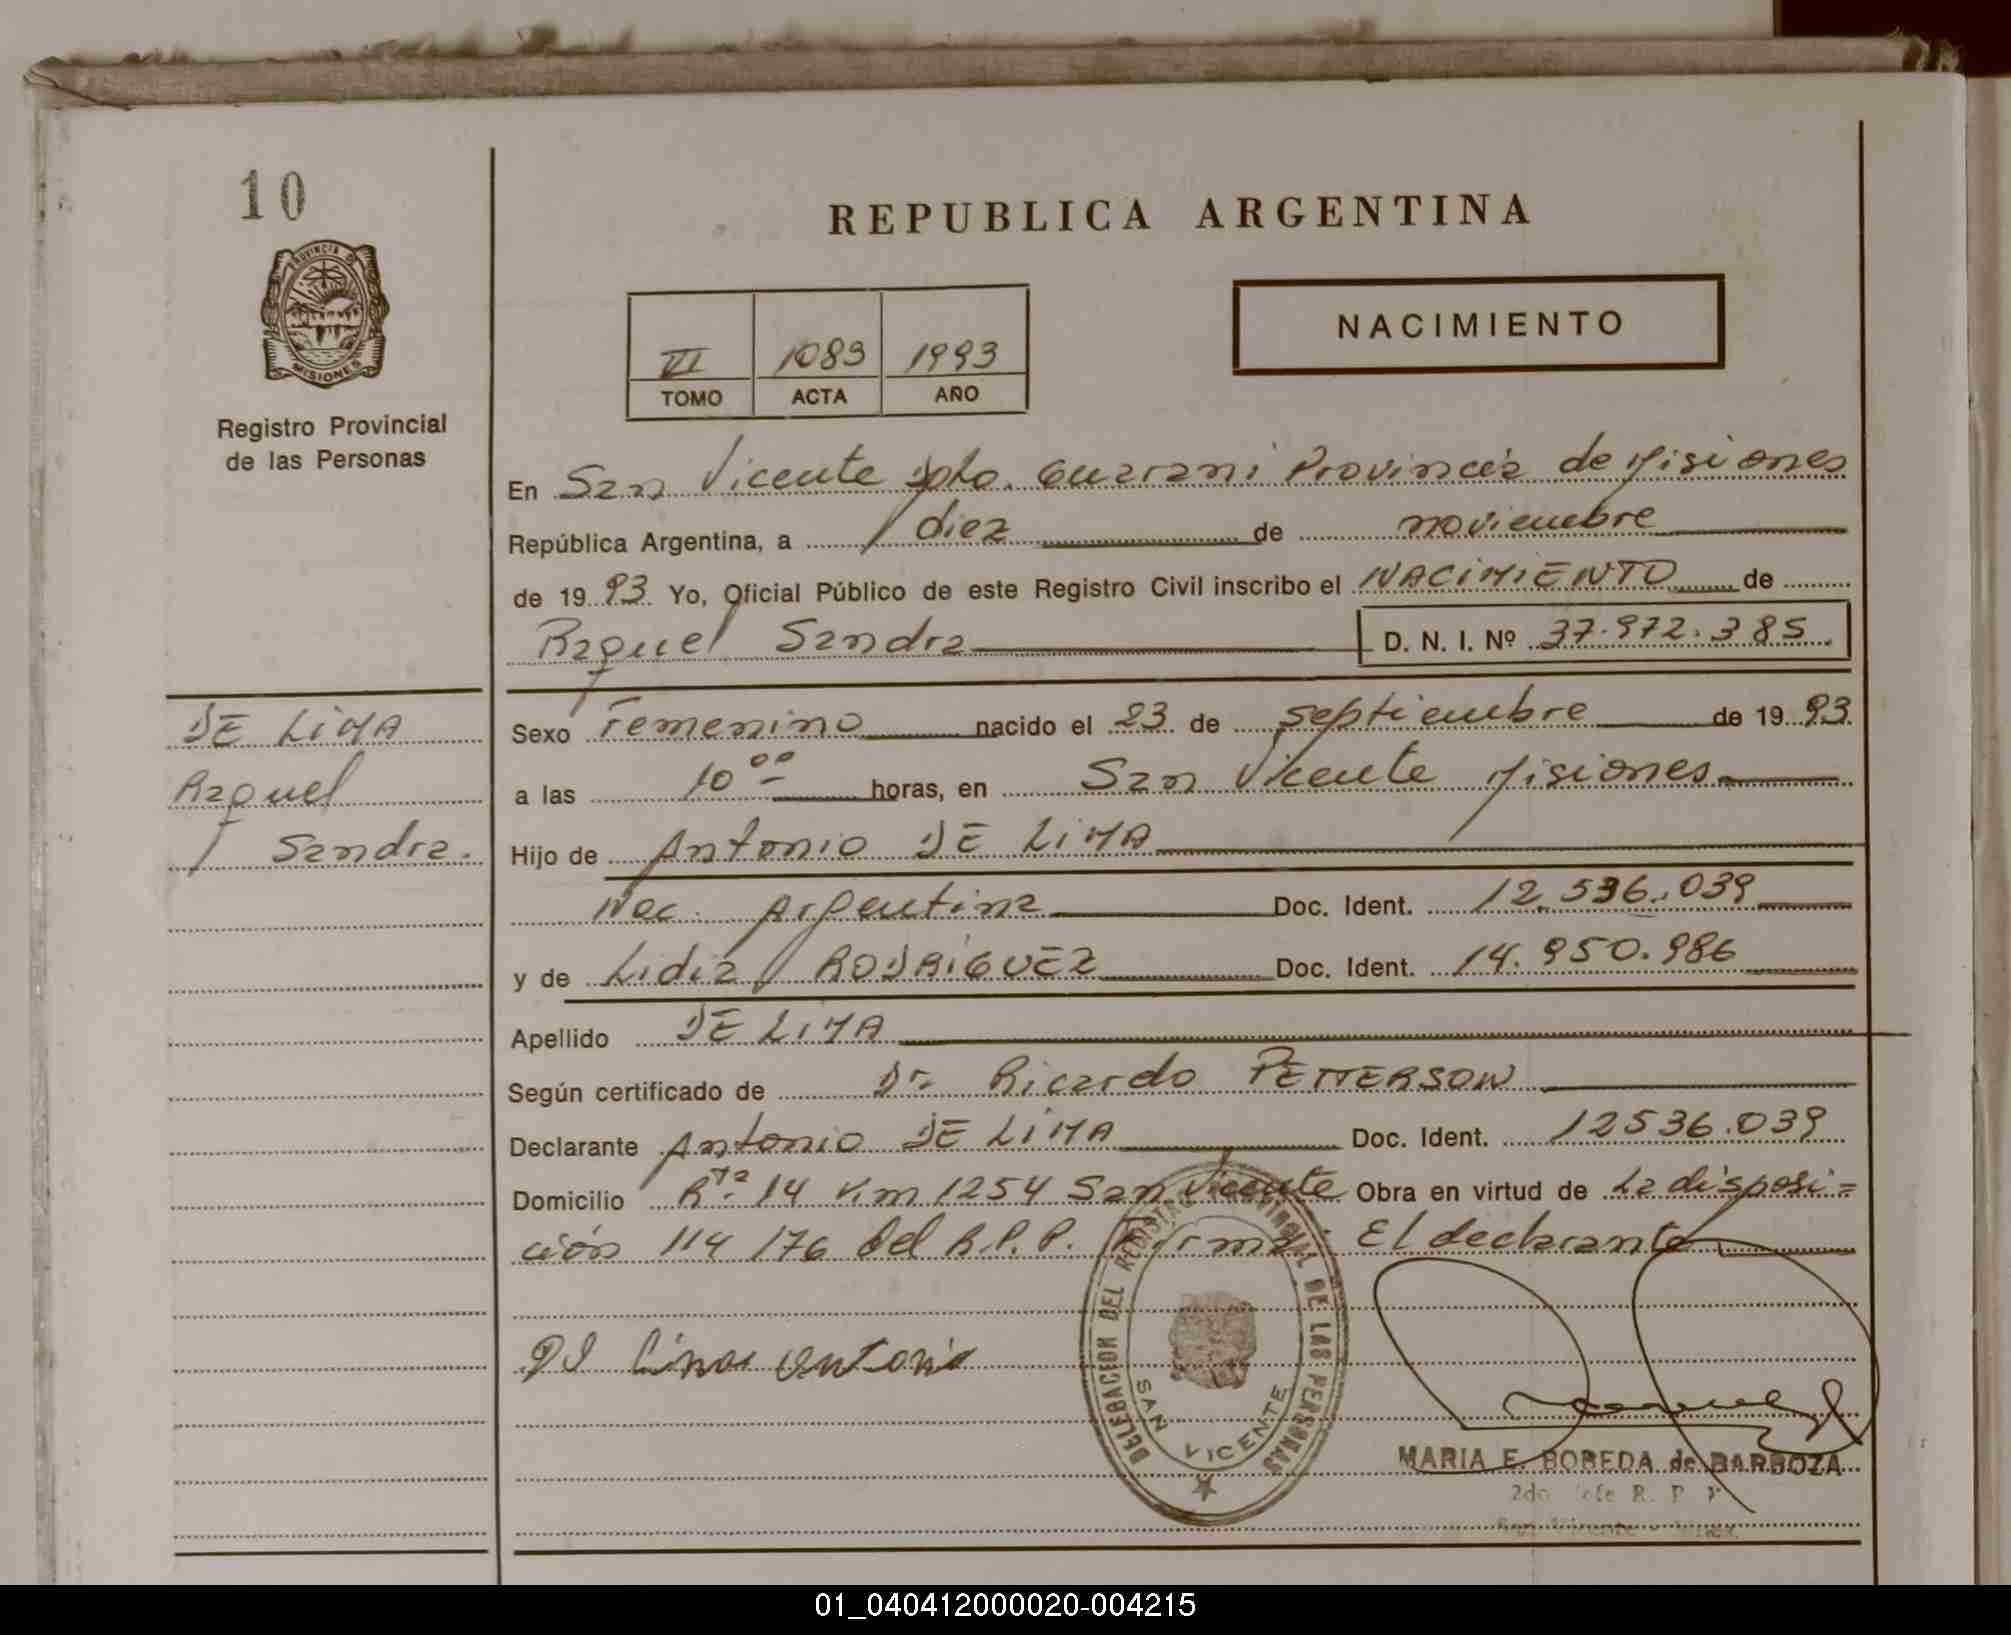 10
PROVINCIA DE
MISIONES
Registro Provincial
de las Personas
REPUBLICA ARGENTINA
NACIMIENTO
III 1083 1993
TOMO ACTA AÑO
En San Vicente Dpto. Guarani Provincia de Misiones
República Argentina, a diez de noviembre
de 19 93 Yo, Oficial Público de este Registro Civil inscribo el NACIMIENTO de
Raquel Sandra D. N. I. Nº 37.972.385
DE LIMA
Raquel
Sandra.
Sexo Femenino nacido el 23 de septiembre de 19 93
a las 10 00 horas, en San Vicente Misiones
Hijo de Antonio DE LIMA
Nac. Argentina Doc. Ident. 12.536.039
y de Lidia RODRIGUEZ Doc. Ident. 14.950.986
Apellido DE LIMA
Según certificado de Dr. Ricardo PETTERSON
Declarante Antonio DE LIMA Doc. Ident. 12536.039
Domicilio Rta. 14 Km 1254 San Vicente Obra en virtud de La disposi=
ción 114/76 del R.P.P. Firma: El declarante
DELEGACION DEL REGISTRO PROVINCIAL DE LAS PERSONAS
SAN VICENTE
Antonio
MARIA E. BOBEDA de BARBOZA
2do Jefe R. P. P.
San Vicente - Mnes.
01_040412000020-004215